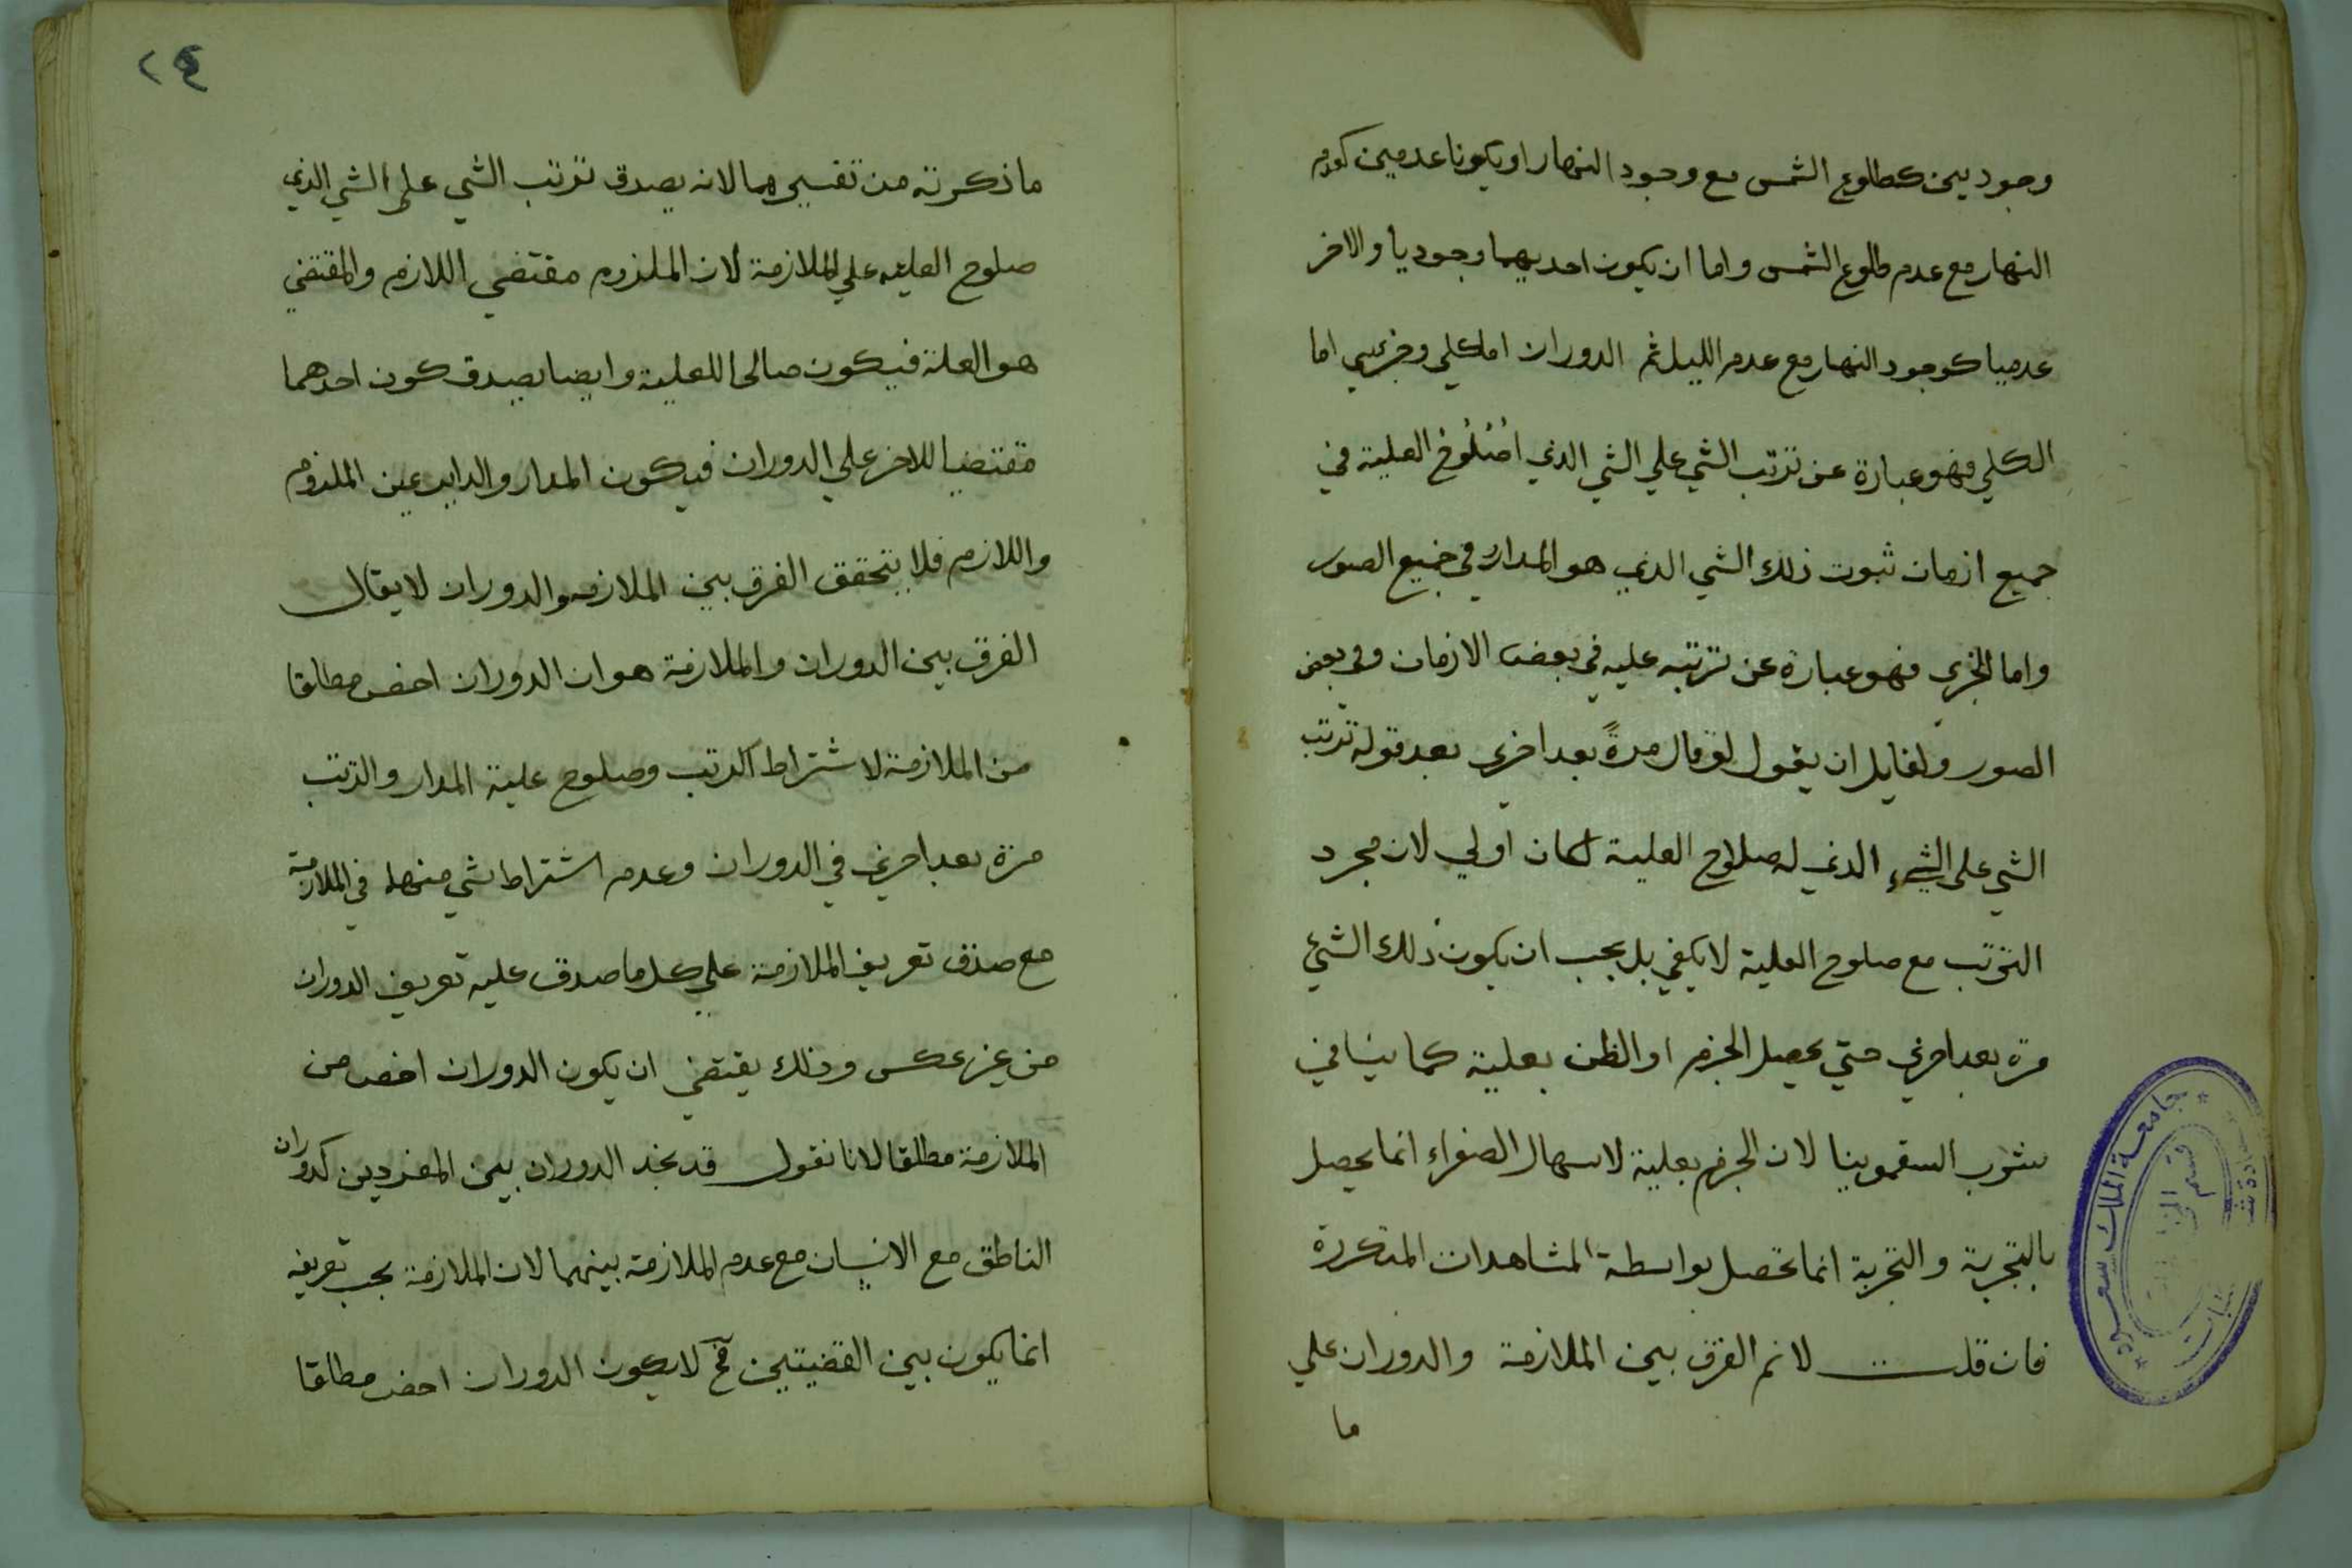 وجوديين كطلوع الشمس مع وجود النهار او يكونا عدميين كعدم
النهار مع عدم طلوع الشمس واما ان يكون احديهما وجوديا والاخر
عدميا كوجود النهار مع عدم الليل ثم الدوران اما كلي وجزئي اما
الكلي فهو عبارة عن ترتب الشي علي الشي الذي العلية في
جميع ازمان ثبوت ذلك الشي الذي هو المدار في جميع الصور
واما الجزي فهو عبارة عن ترتبه عليه في بعض الازمان وفي بعض
الصور ولقايل ان يقول لو قال مرةً بعد اخري بعد قوله ترتب
الشي على الشيء الذي له صلاح العلية لكان اولي لان مجرد
الترتب مع صلوح العلية لا يكفي بل يجب ان يكون ذلك الشئ
مرة بعد اخري حتي يحصل الجزم او الظن بعلية كما في
شرب السقمونيا لان الجزم بعلية لاسهال الصفراء انما يحصل
بالتجربة والتجربة انما تحصل بواسطة المشاهدات المتكررة
فان قلت لانم الفرق بين الملازمة والدوران علي
ما
٢٤
ما ذكرته من تفسيرهما لانه يصدق ترتب الشي على الشي الذي
صلوح العليه علي الملازمة لان الملزوم مقتضي اللازم والمقتضي
هو العلة فيكون صالحا للعلية وايضا يصدق كون احدهما
مقتضيا للاخر علي الدوران فيكون المدار والداير عين الملزوم
واللازم فلا يتحقق الفرق بين الملازمه والدوران لا يقال
الفرق بين الدوران والملازمة هو ان الدوران اخص مطلقا
من الملازمة لاشتراط الترتب وصلوح علية المدار والترتب
مرة بعد اخري في الدوران وعدم اشتراط شي منها في الملازمة
مع صدق تعريف الملازمة علي كل ما صدق عليه تعريف الدوران
من غير عكس وذلك يقتضي ان يكون الدوران اخص من
الملازمة مطلقا لانا نقول قد نجد الدوران بين المفردين كدوران
الناطق مع الانسان مع عدم الملازمة بينهما لان الملازمة بحسب تعريفه
انما يكون بين القضيتين فح لا يكون الدوران اخص مطلقا
جامعة الملك سعود
قسم